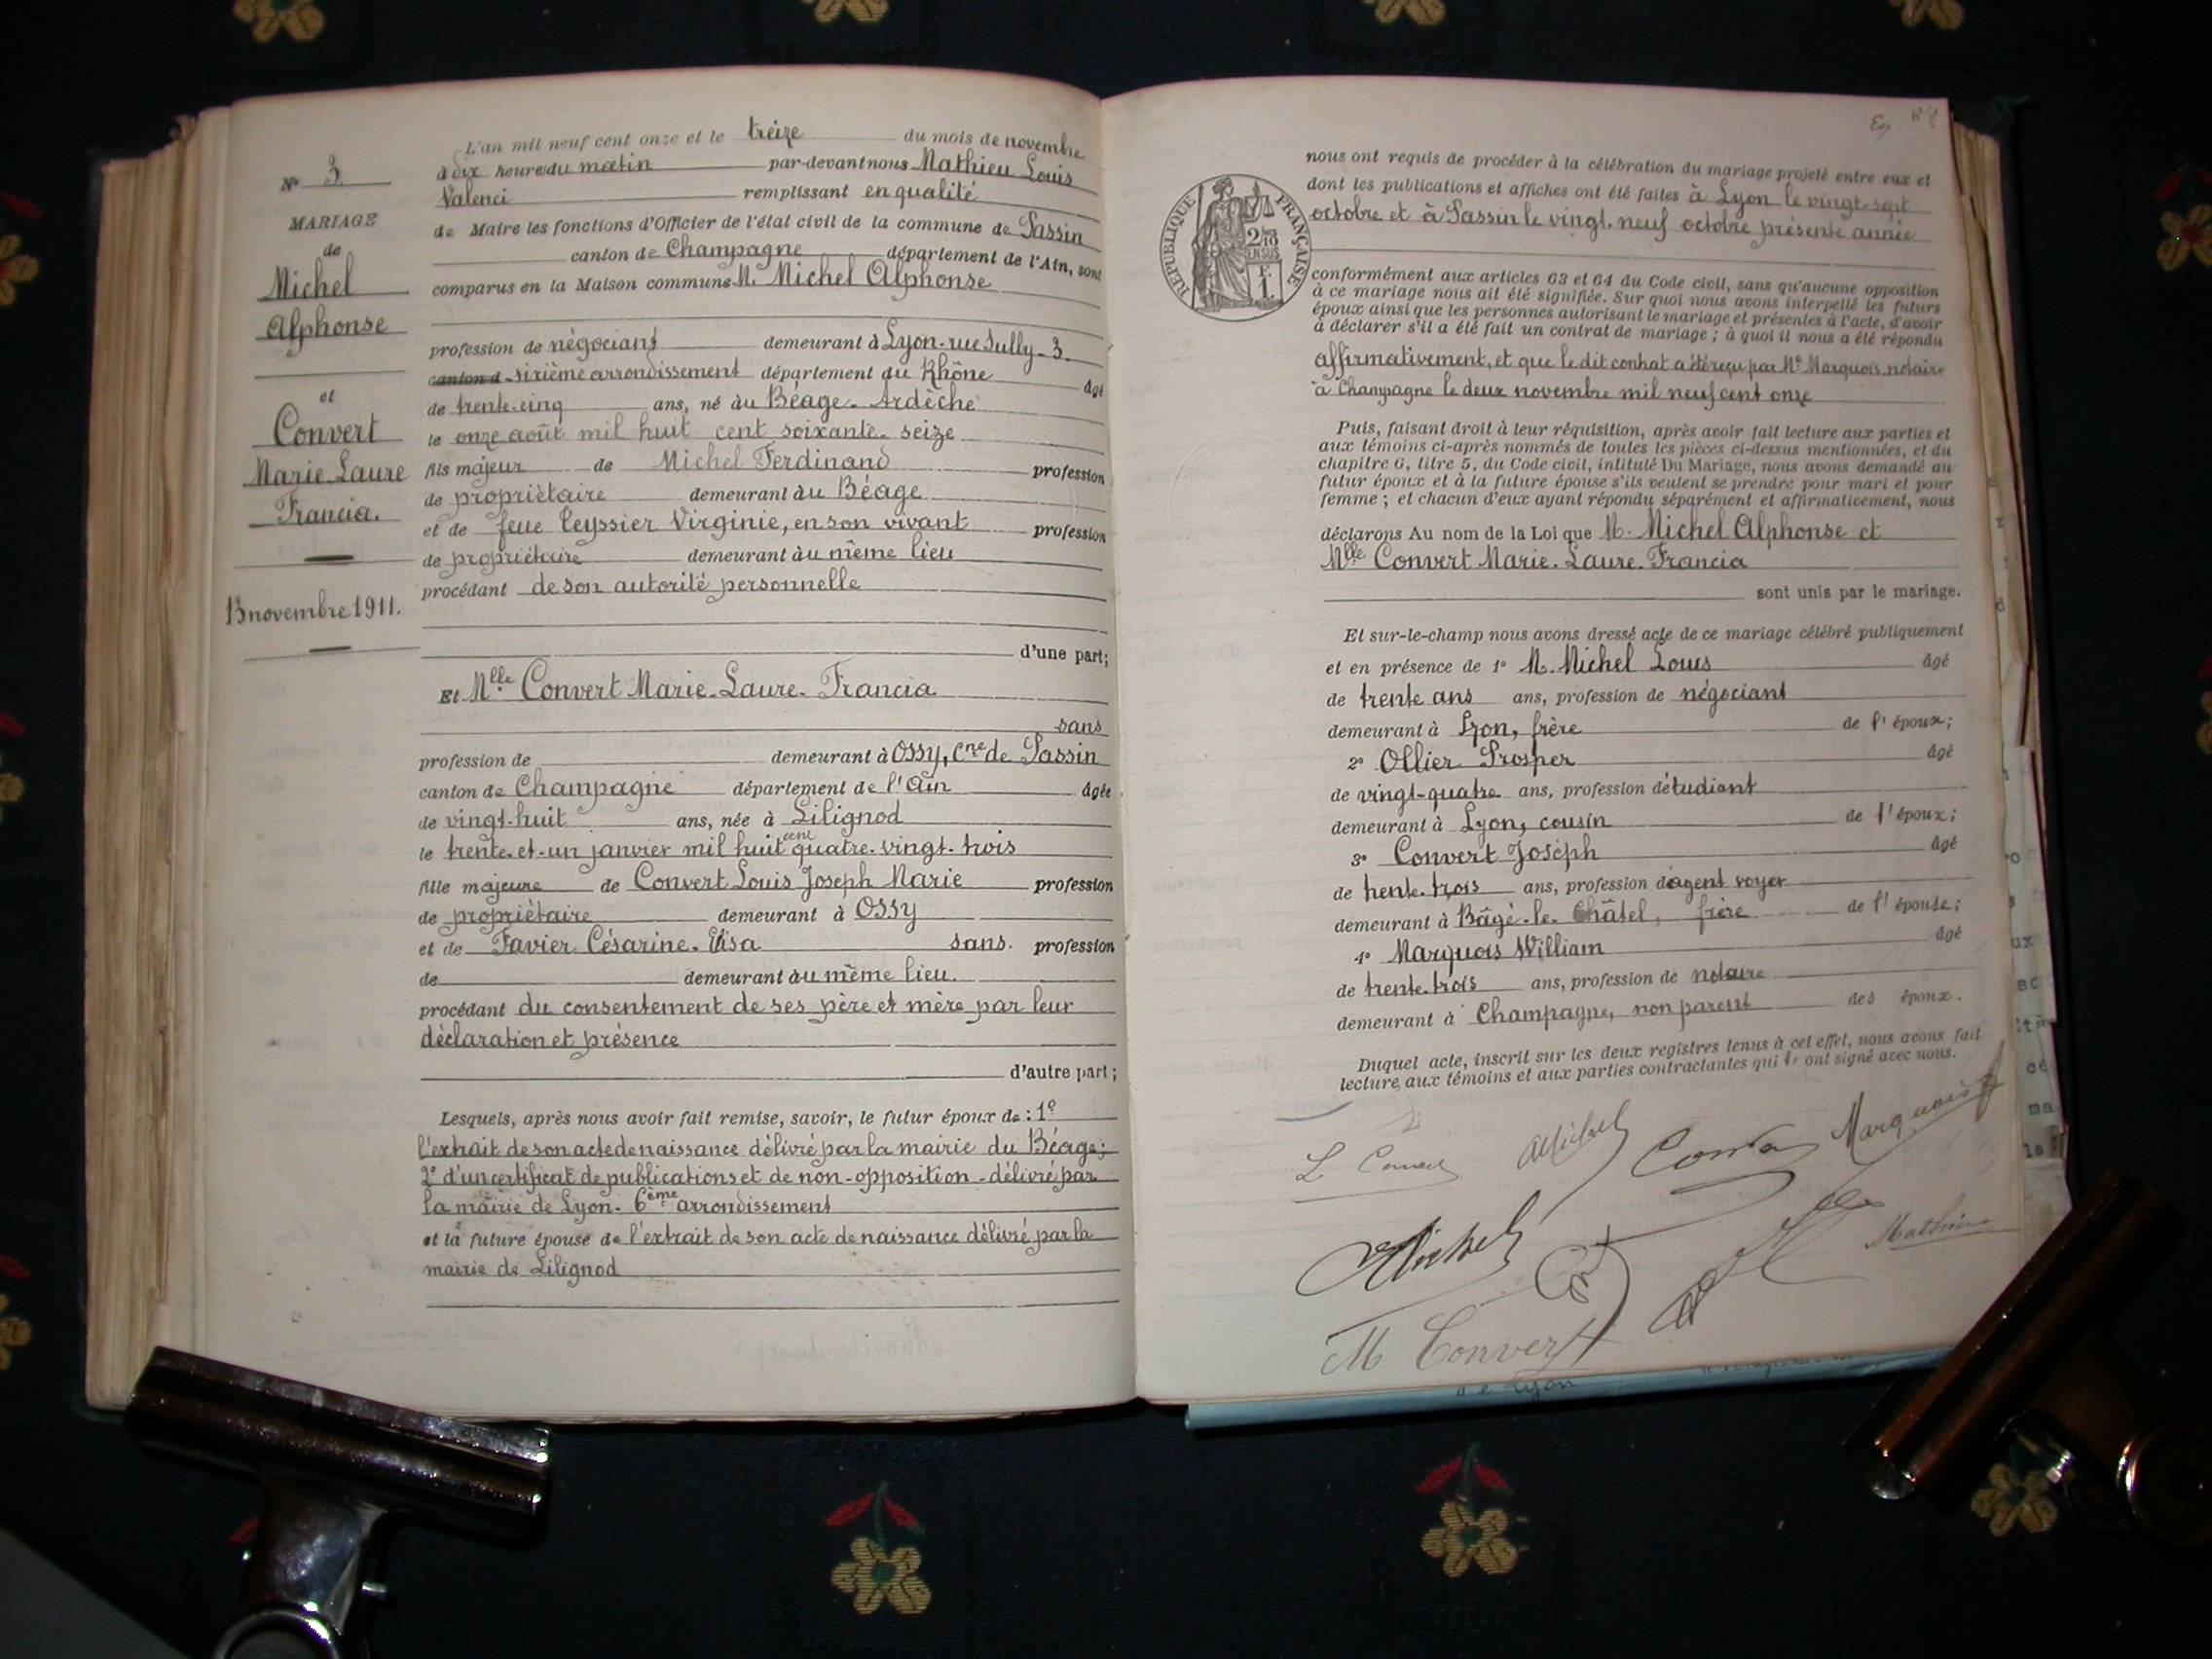 N° 3
MARIAGE
de
Michel
Alphonse
et
Convert
Marie-Laure
Francia.
13 novembre 1911.
L'an mil neuf cent onze et le treize du mois de novembre
à dix heures du matin par-devant nous Mathieu Louis
Valenci remplissant en qualité
de Maire les fonctions d'Officier de l'état civil de la commune de Passin
canton de Champagne département de l'Ain, sont
comparus en la Maison commune M. Michel Alphonse
profession de négociant demeurant à Lyon-rue Sully-3
canton d sixième arrondissement département du Rhône âgé
de trente-cinq ans, né au Béage-Ardèche
le onze août mil huit cent soixante-seize
fils majeur de Michel Ferdinand profession
de propriétaire demeurant au Béage
et de feue Teyssier Virginie, en son vivant profession
de propriétaire demeurant au même lieu
procédant de son autorité personnelle
d'une part;
Et Mlle Convert Marie-Laure-Francia
sans
profession de demeurant à Ossy, Cne de Passin
canton de Champagne département de l'Ain âgée
de vingt-huit ans, née à Lilignod
le trente-et-un janvier mil huit cent quatre-vingt-trois
fille majeure de Convert Louis Joseph Marie profession
de propriétaire demeurant à Ossy
et de Favier Césarine-Elisa sans profession
de demeurant au même lieu.
procédant du consentement de ses père et mère par leur
déclaration et présence
d'autre part;
Lesquels, après nous avoir fait remise, savoir, le futur époux de : 1°
l'extrait de son acte de naissance délivré par la mairie du Béage;
2° d'un certificat de publications et de non-opposition-délivré par
la mairie de Lyon-6ème arrondissement
et la future épouse de l'extrait de son acte de naissance délivré par la
mairie de Lilignod
REPUBLIQUE FRANÇAISE
2/10
EN SUS
F.
1.
nous ont requis de procéder à la célébration du mariage projeté entre eux et
dont les publications et affiches ont été faites à Lyon le vingt-sept
octobre et à Passin le vingt-neuf octobre présente année
conformément aux articles 63 et 64 du Code civil, sans qu'aucune opposition
à ce mariage nous ait été signifiée. Sur quoi nous avons interpellé les futurs
époux ainsi que les personnes autorisant le mariage et présentes à l'acte, d'avoir
à déclarer s'il a été fait un contrat de mariage ; à quoi il nous a été répondu
affirmativement, et que le dit contrat a été reçu par Me Marquois, notaire
à Champagne le deux novembre mil neuf cent onze
Puis, faisant droit à leur réquisition, après avoir fait lecture aux parties et
aux témoins ci-après nommés de toutes les pièces ci-dessus mentionnées, et du
chapitre 6, titre 5, du Code civil, intitulé Du Mariage, nous avons demandé au
futur époux et à la future épouse s'ils veulent se prendre pour mari et pour
femme ; et chacun d'eux ayant répondu séparément et affirmativement, nous
déclarons Au nom de la Loi que M. Michel Alphonse et
Mlle Convert Marie-Laure-Francia
sont unis par le mariage.
Et sur-le-champ nous avons dressé acte de ce mariage célébré publiquement
et en présence de 1° M. Michel Louis âgé
de trente ans ans, profession de négociant
demeurant à Lyon, frère de l'époux;
2° Ollier Prosper âgé
de vingt-quatre ans, profession d'étudiant
demeurant à Lyon, cousin de l'époux;
3° Convert Joseph âgé
de trente-trois ans, profession d'agent voyer
demeurant à Bâgé-le-Châtel, frère de l'épouse;
4° Marquois William âgé
de trente-trois ans, profession de notaire
demeurant à Champagne, non parent des époux.
Duquel acte, inscrit sur les deux registres tenus à cet effet, nous avons fait
lecture aux témoins et aux parties contractantes qui ont signé avec nous.
AMichel
Marquois
Michel
Mathieu
M Convert
de Lyon